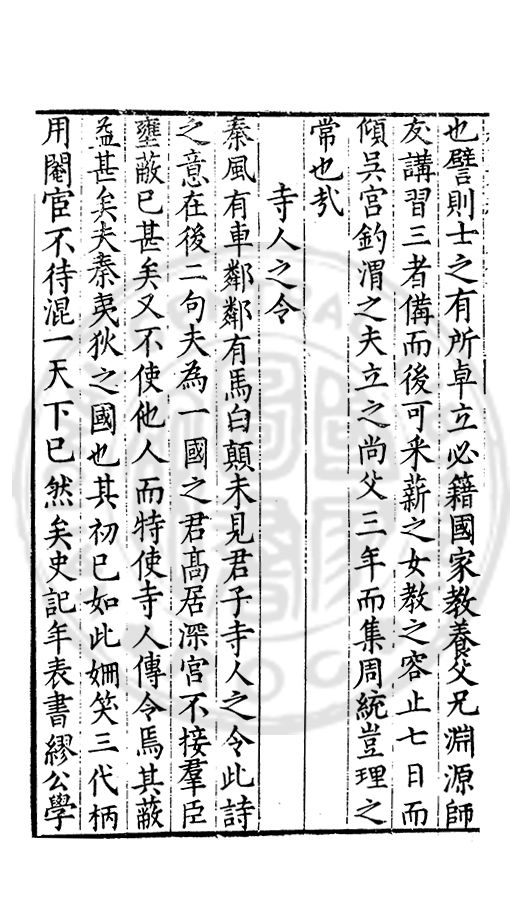 也譬則士之有所卓立必籍國家教養父兄淵源師
友講習三者備而後可釆薪之女教之容止七日而
傾吳宮釣渭之夫立之尚父三年而集周統豈理之
常也㢤
寺人之令
秦風有車鄰鄰有馬白顛未見君子寺人之令此詩
之意在後二句夫為一國之君高居深宮不接羣臣
壅蔽已甚矣又不使他人而特使寺人傳令焉其蔽
益甚矣夫秦夷狄之國也其初已如此姍笑三代柄
用閹宦不待混一天下已然矣史記年表書繆公學